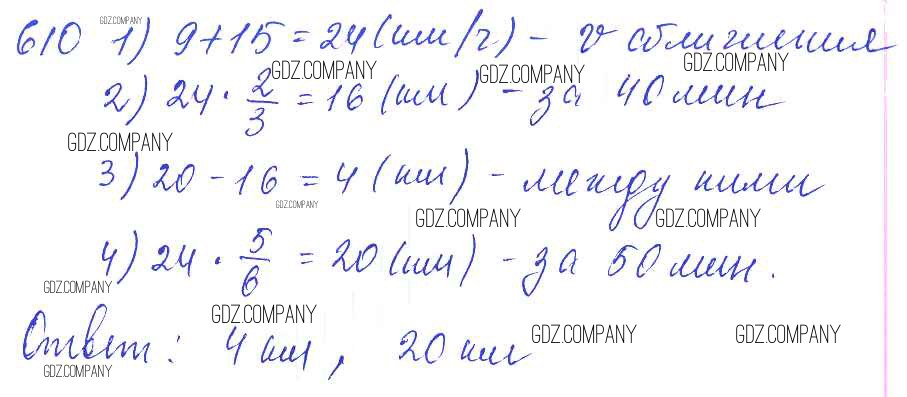 GDZ.COMPANY
610 1) 9+15=24(км/ч) - v сближения
GDZ.COMPANY GDZ.COMPANY GDZ.COMPANY
2) 24 · 2/3 = 16 (км) - за 40 мин
GDZ.COMPANY
3) 20 - 16 = 4 (км) - между ними
GDZ.COMPANY GDZ.COMPANY GDZ.COMPANY
4) 24 · 5/6 = 20 (км) - за 50 мин.
GDZ.COMPANY
GDZ.COMPANY
Ответ: 4 км, 20 км
GDZ.COMPANY GDZ.COMPANY
GDZ.COMPANY